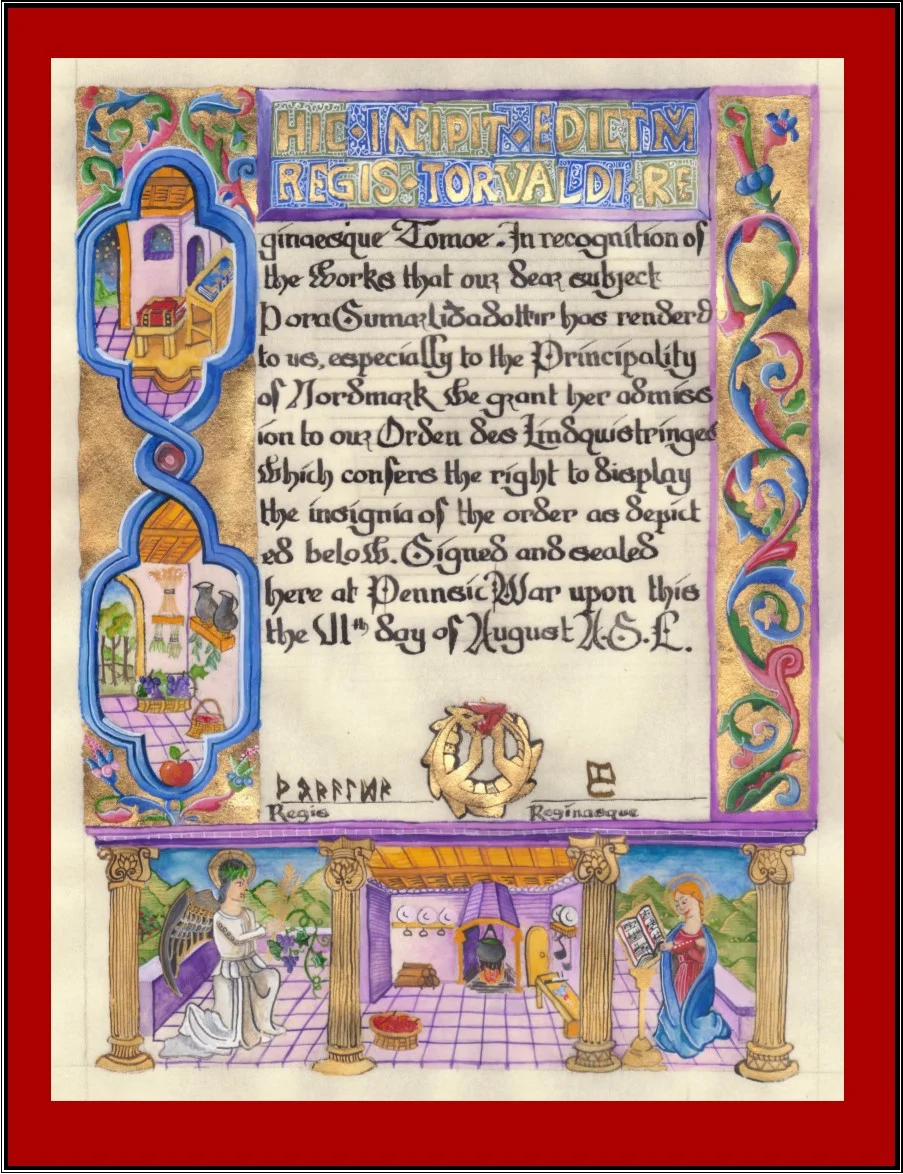 HIC·INCIPIT·EDICTM
REGIS·TORVALDI·RE
ginaesque Tomoe. In recognition of
the Works that our dear subject
Þora Sumarliðadottir has renderd
to us, especially to the Principality
of Nordmark We grant her admiss
ion to our Orden des Lindquistringes
Which confers the right to display
the insignia of the order as depict
ed beloW. Signed and sealed
here at Pennsic War upon this
the VIth day of August A.S. L.
Regis Reginaesque